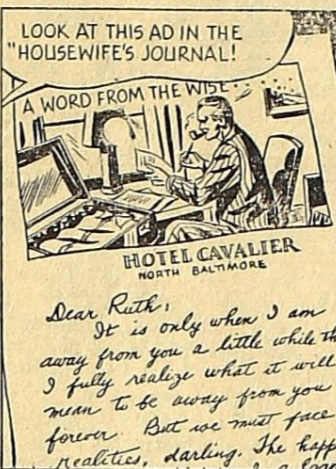 LOOK AT THIS AD IN THE
"HOUSEWIFE'S JOURNAL!
A WORD FROM THE WISE
HOTEL CAVALIER
NORTH BALTIMORE
Dear Ruth:
It is only when I am
away from you a little while
I fully realize what it will
mean to be away from you
forever. But we must face
realities, darling. The